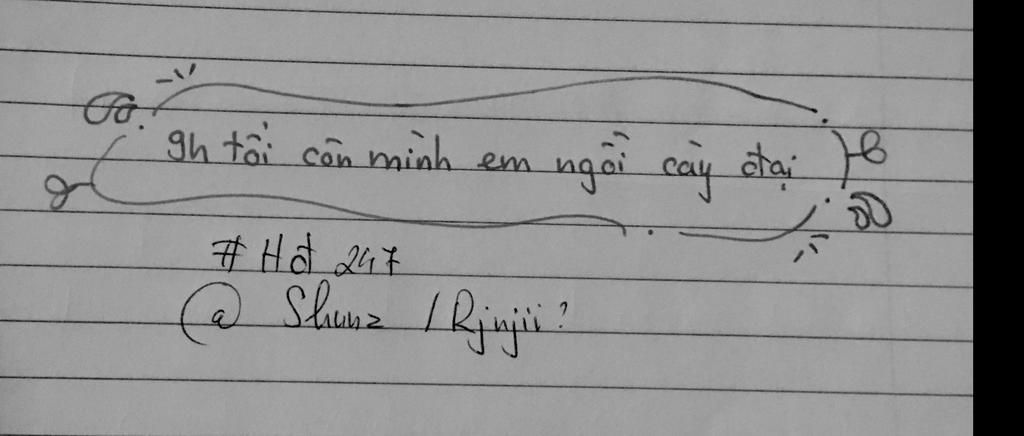 9h tối còn mình em ngồi cày đại
# Hót 247
@ Shunz / Rjnjii?